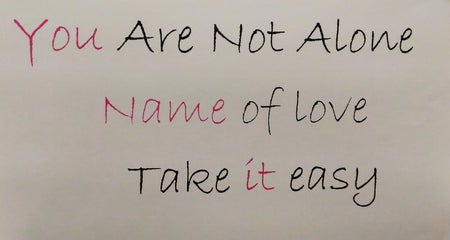 You Are Not Alone
Name of love
Take it easy